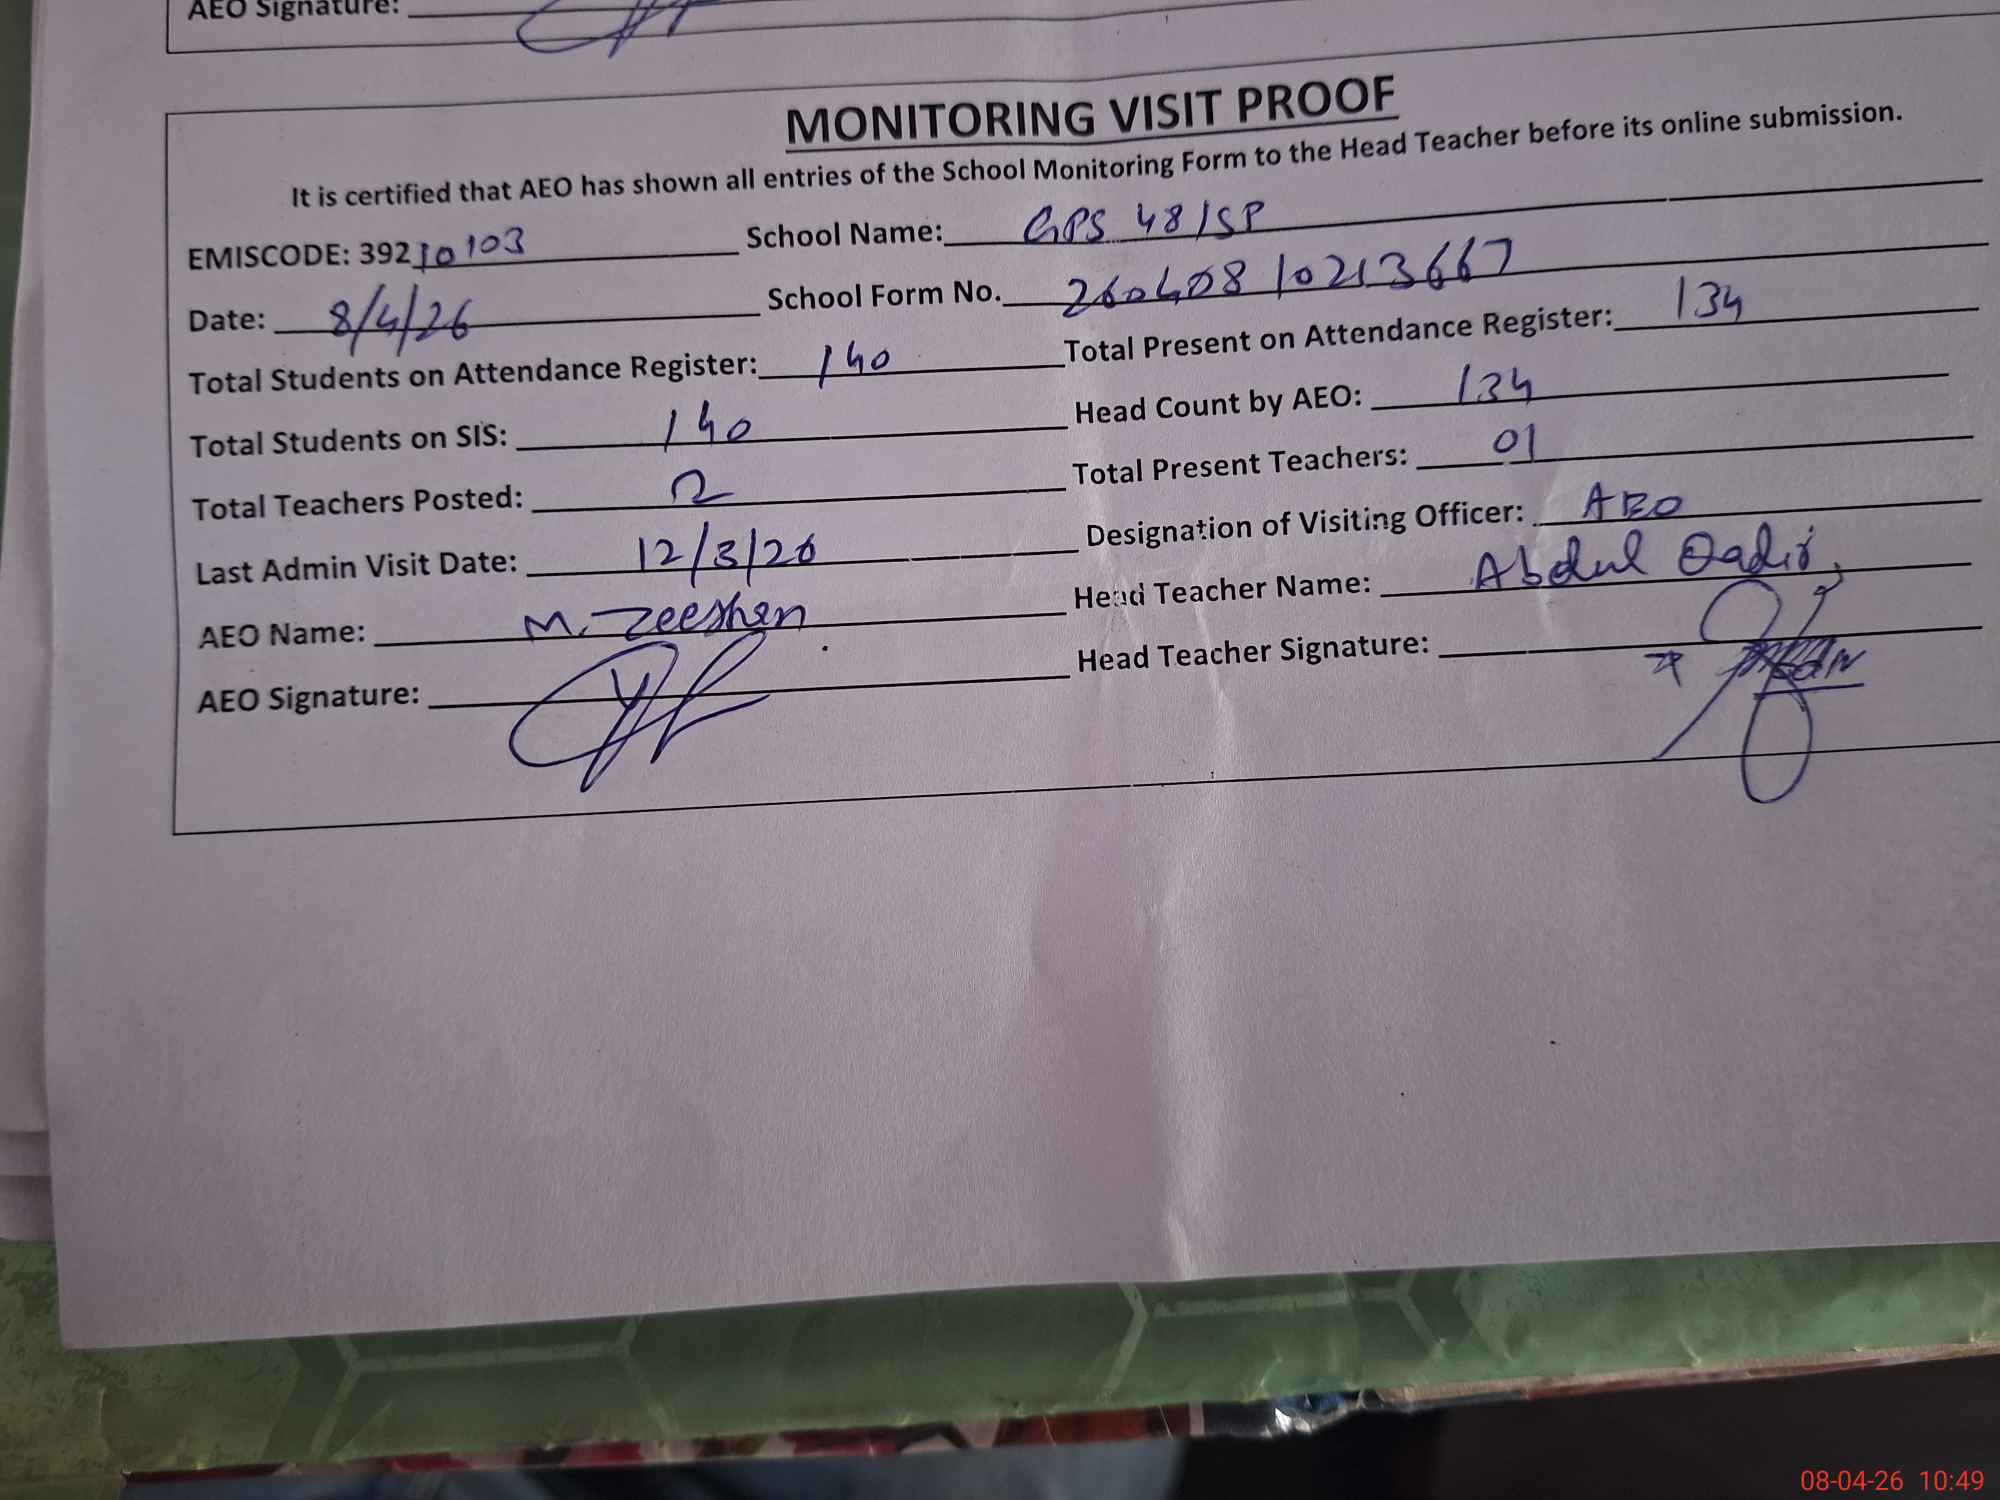 AEO Signature:
MONITORING VISIT PROOF
It is certified that AEO has shown all entries of the School Monitoring Form to the Head Teacher before its online submission.
EMISCODE: 39210103 School Name: GPS 48/SP
Date: 8/4/26 School Form No. 26040810213667
Total Students on Attendance Register: 140 Total Present on Attendance Register: 134
Total Students on SIS: 140 Head Count by AEO: 134
Total Teachers Posted: 2 Total Present Teachers: 01
Last Admin Visit Date: 12/3/26 Designation of Visiting Officer: AEO
AEO Name: M. Zeeshan Head Teacher Name: Abdul Qadir
AEO Signature: Head Teacher Signature:
08-04-26 10:49